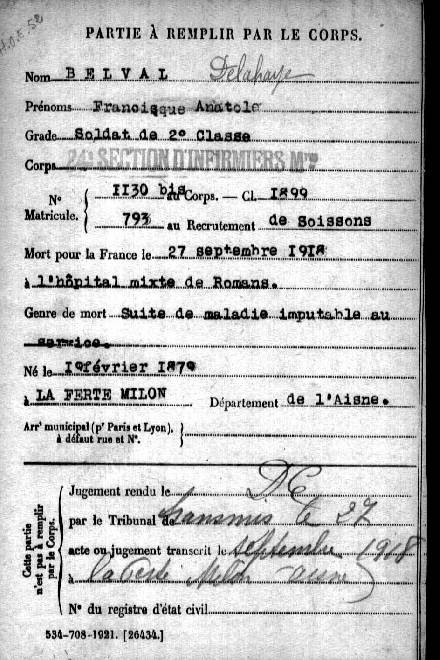 H.O.E. 52
PARTIE À REMPLIR PAR LE CORPS.
Nom BELVAL Delahaye
Prénoms Francisque Anatole
Grade Soldat de 2° Classe
Corps 24e SECTION D'INFIRMIERS Mres
N° Matricule. { II30 bis au Corps. — Cl. I899
793 au Recrutement de Soissons
Mort pour la France le 27 septembre I9I8
à l'hôpital mixte de Romans.
Genre de mort Suite de maladie imputable au
service.
Né le I° février I879
à LA FERTE MILON Département de l'Aisne.
Arrt municipal (pr Paris et Lyon),
à défaut rue et N°.
Cette partie n'est pas à remplir par le Corps.
Jugement rendu le DC
par le Tribunal de transmis le 27
acte ou jugement transcrit le septembre 1918
à la Ferté Milon Aisne
N° du registre d'état civil
534-708-1921. [26434.]